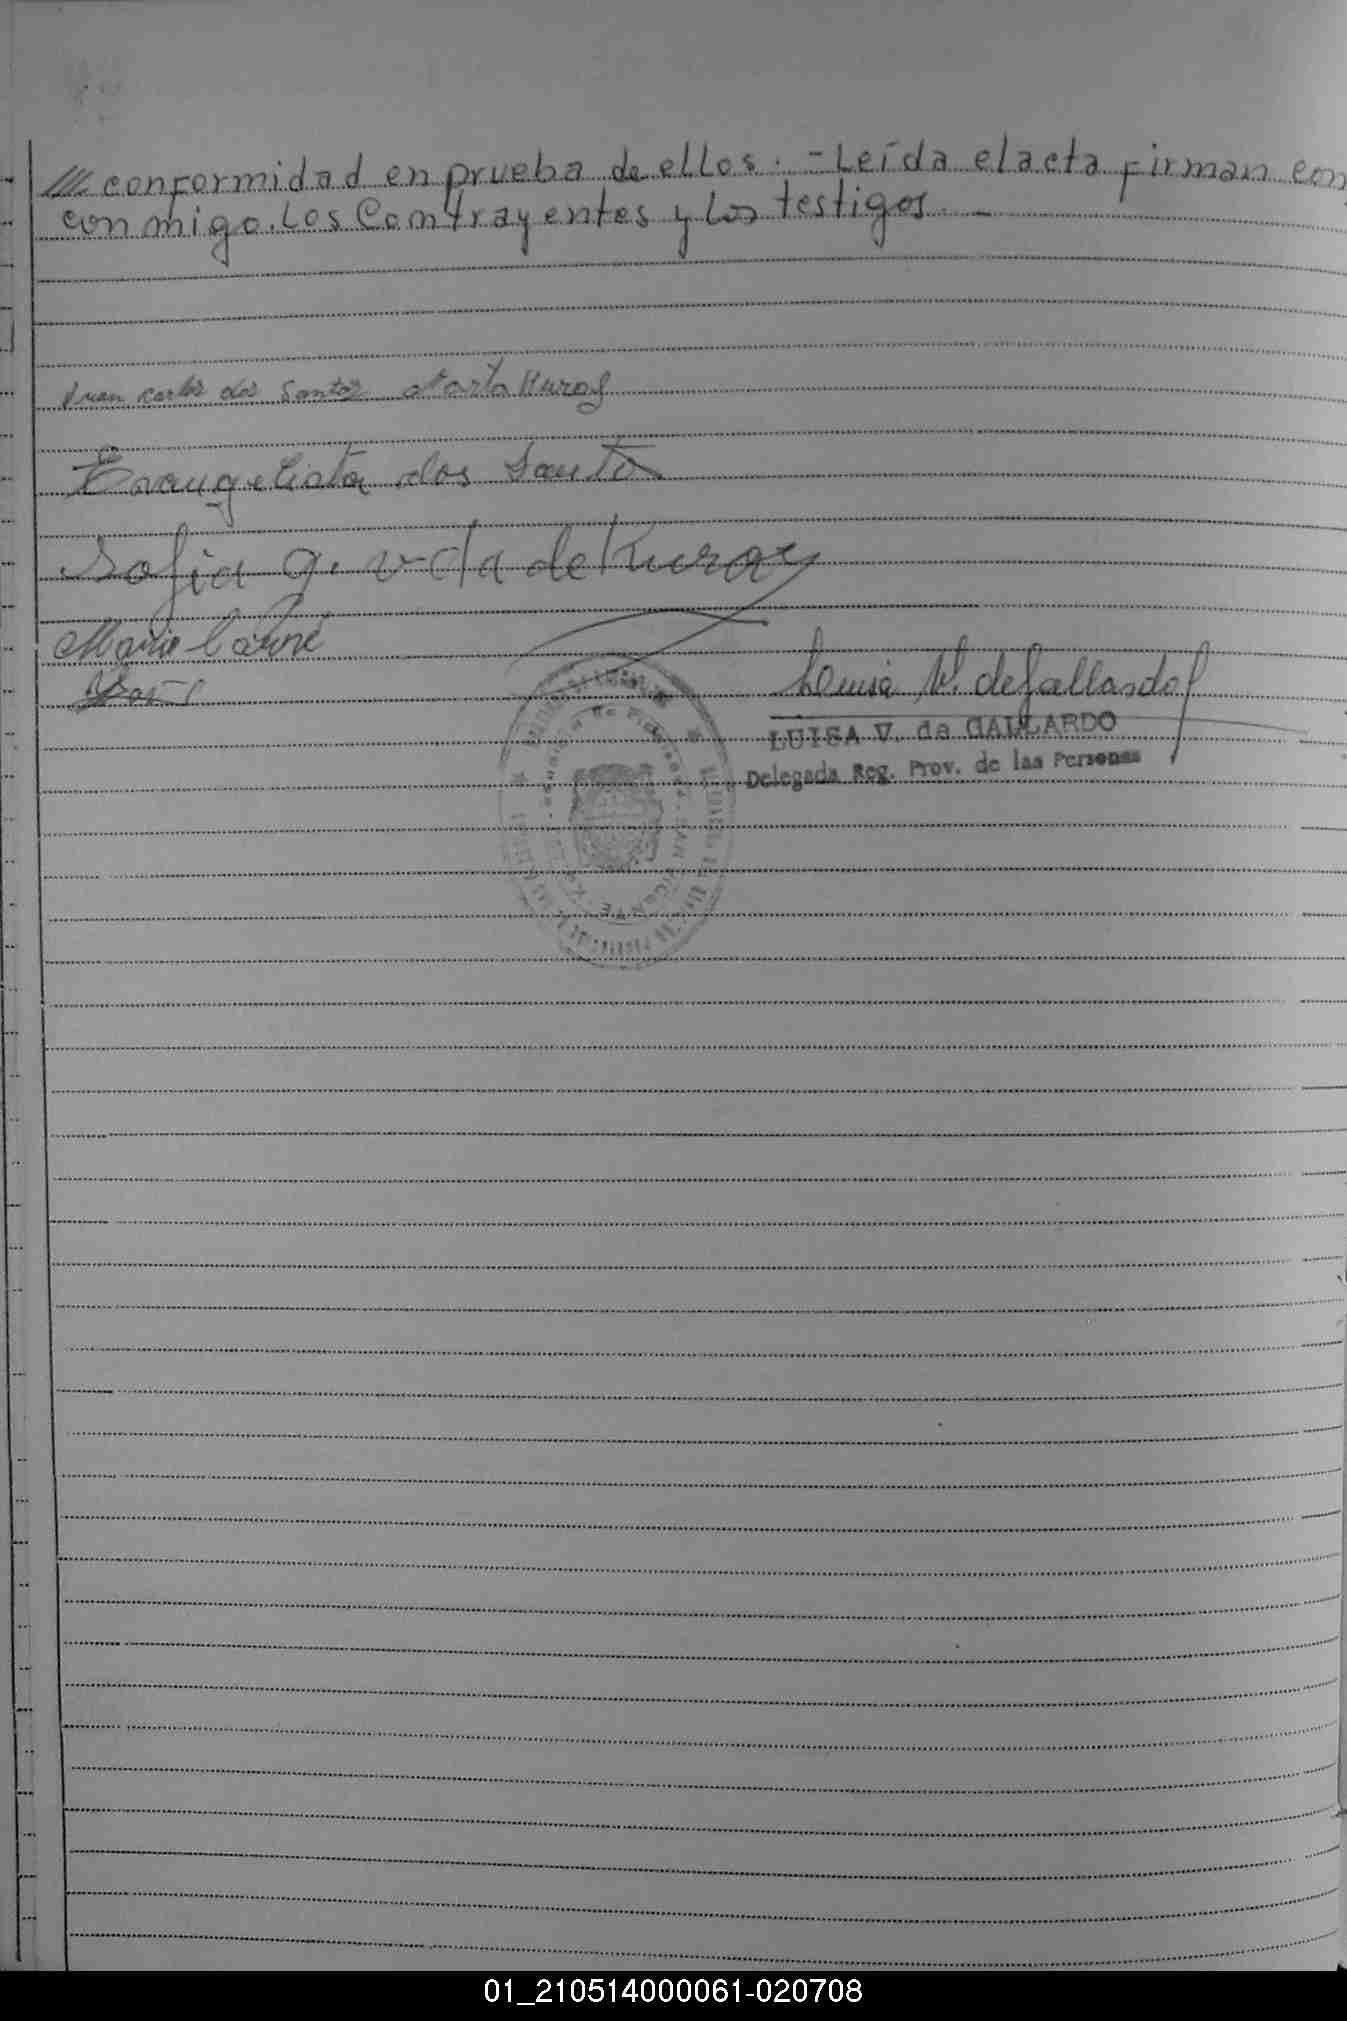 conformidad en prueba de ellos. - Leída el acta firman con
conmigo. Los Contrayentes y los testigos. -
Juan Carlos dos Santos Marta Kuras
Evangelista dos Santos
Sofia G. vda de Kuras
Maria
Luisa V. de Gallardo
LUISA V. de GALLARDO
Delegada Reg. Prov. de las Personas
01_210514000061-020708